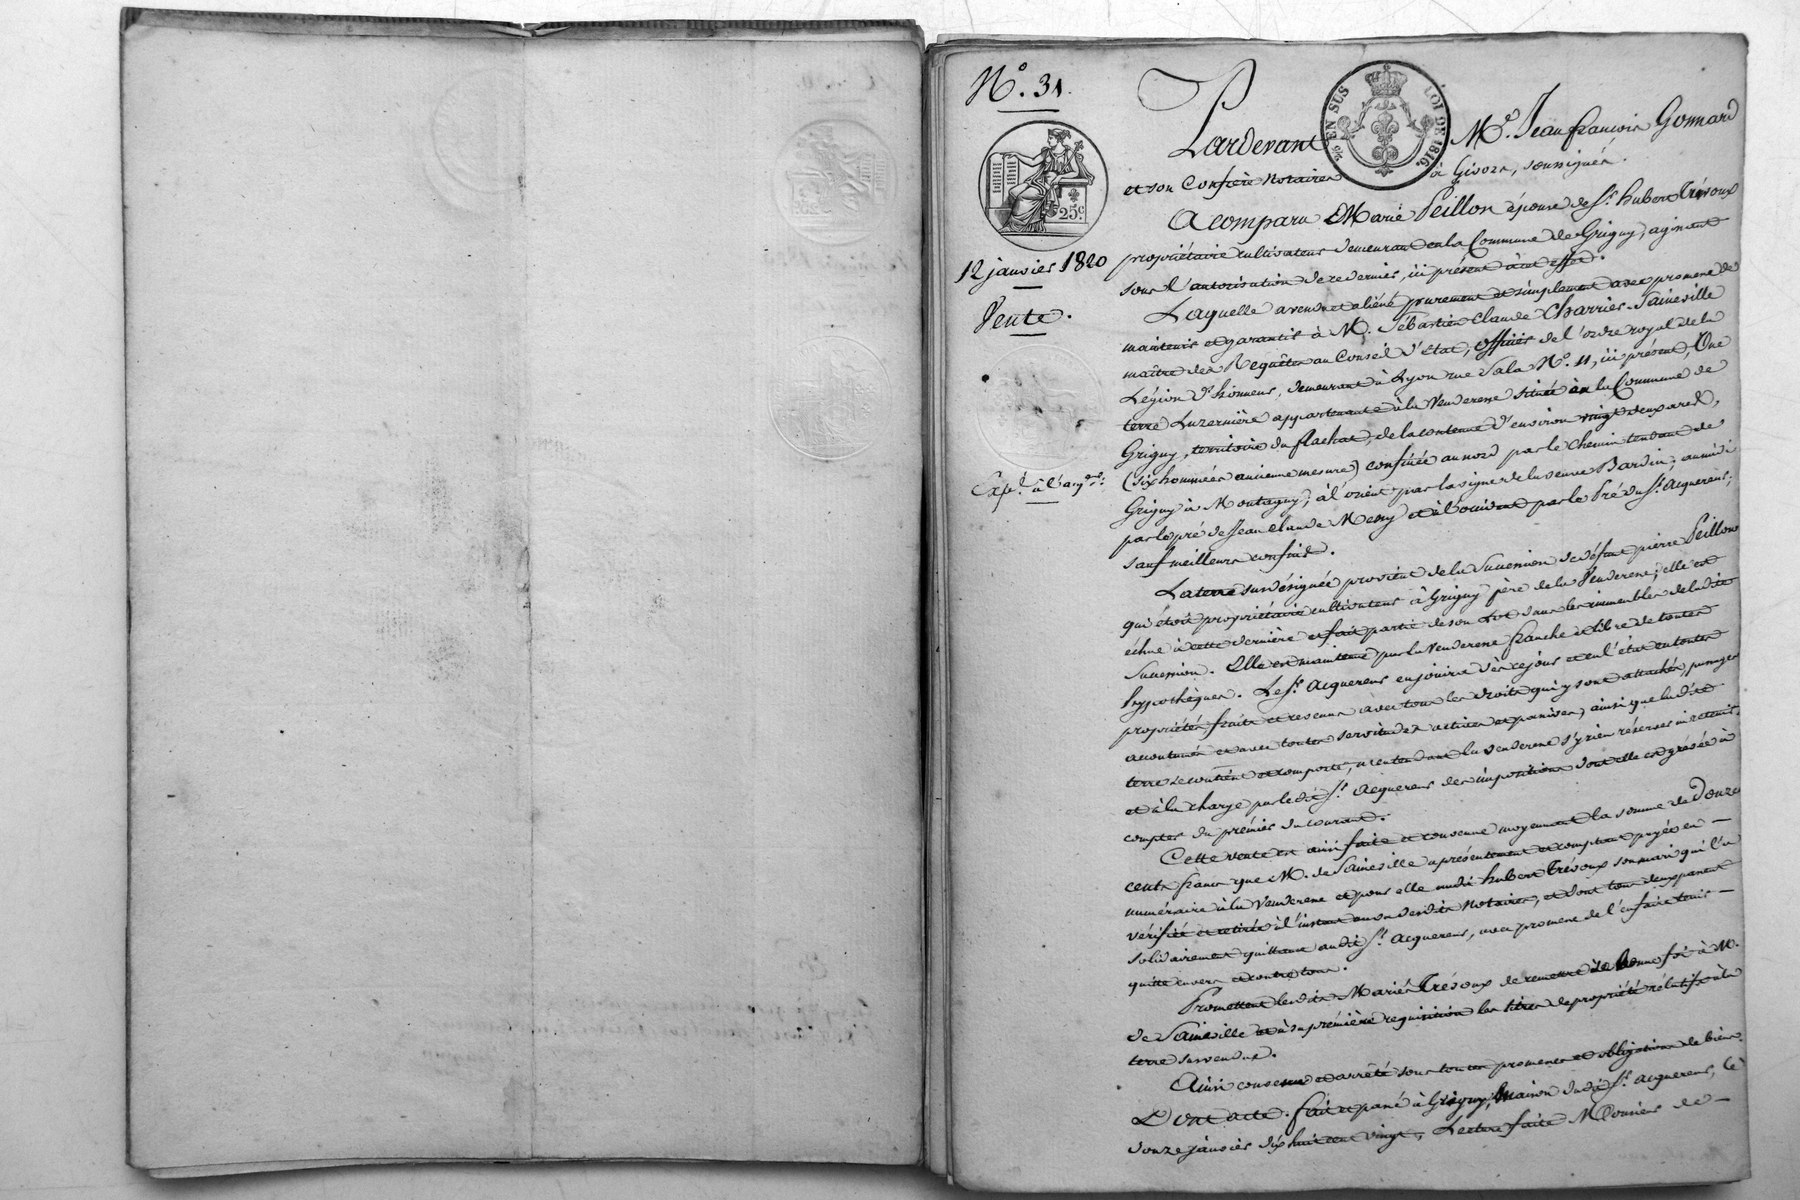 N.° 31.
25c.
12 janvier 1820
Vente.
Exp.on à l'acq.r
EN SUS LOI DE 1816.
Pardevant Me. Jean françois Gonnard
et son Confrère Notaires à Givors, soussignés.
A comparu Marie Peillon épouse de Sr. hubert Trévoux
propriétaire cultivateur demeurant en la Commune de Grigny, agissant
sous l'autorisation de ce dernier, ici présent à cet effet.
Laquelle a vendu et aliéné purement et simplement avec promesse de
maintenir et garantir à M. Sébastien Claude Charrier-Saineville
maître des Requêtes au Conseil d'état, officier de l'ordre royal de la
Légion d'honneur, demeurant à Lyon rue Sala N.° 11, ici présent, Une
terre Luzernière appartenante à la Venderesse située en la Commune de
Grigny, territoire du flachat, de la contenue d'environ vingt deux ares,
(six hommées ancienne mesure) confinée au nord par le chemin tendant de
Grigny à Montagny; à l'orient par la vigne de la veuve Bardin; au midi
par le pré de Jean claude Messy et à l'occident par le Pré du Sr. acquereur;
sauf meilleurs confins.
La terre susdésignée provient de la Succession de défunt pierre Peillon
qui étoit propriétaire cultivateur à Grigny père de la Venderesse; elle est
échue à cette dernière et fait partie de son Lot dans les immeubles de la dite
Succession. Elle est maintenue par la Venderesse franche et libre de toutes
hypothèques. Le Sr. acquereur en jouira dès ce jour et en l'état en toutes
propriétés, fruits et revenus avec tous les droits qui y sont attachés, passages
accoutumés et avec toutes servitudes actives et passives, ainsi que la dite
terre se contient et comporte, n'entendant la venderesse s'y rien réserver ni retenir
et à la charge par le dit Sr. acquereur des impositions dont elle est grévée à
compter du premier du courant.
Cette vente est ainsi faite et convenue moyennant la somme de Douze
cents francs que M. de Saineville a présentement et comptant payée en —
numéraire à la Venderesse et pour elle audit hubert Trévoux son mari qui l'a
vérifiée et retirée à l'instant au vu desdits Notaires, et dont tous deux passent
solidairement quittance audit Sr. acquereur, avec promesse de l'en faire tenir —
quitte envers et contre tous.
Promettent les dits Mariés Trévoux de remettre de bonne foi à M.
de Saineville et à sa première requisition les titres de propriété rélatifs à la
terre susvendue.
Ainsi convenu et arrêté sous toutes promesses et obligations de biens.
Dont acte. fait et passé à Grigny, Maison dudit Sr. acquereur, le
douze janvier dix huit cent vingt, Lecture faite Monsieur de —